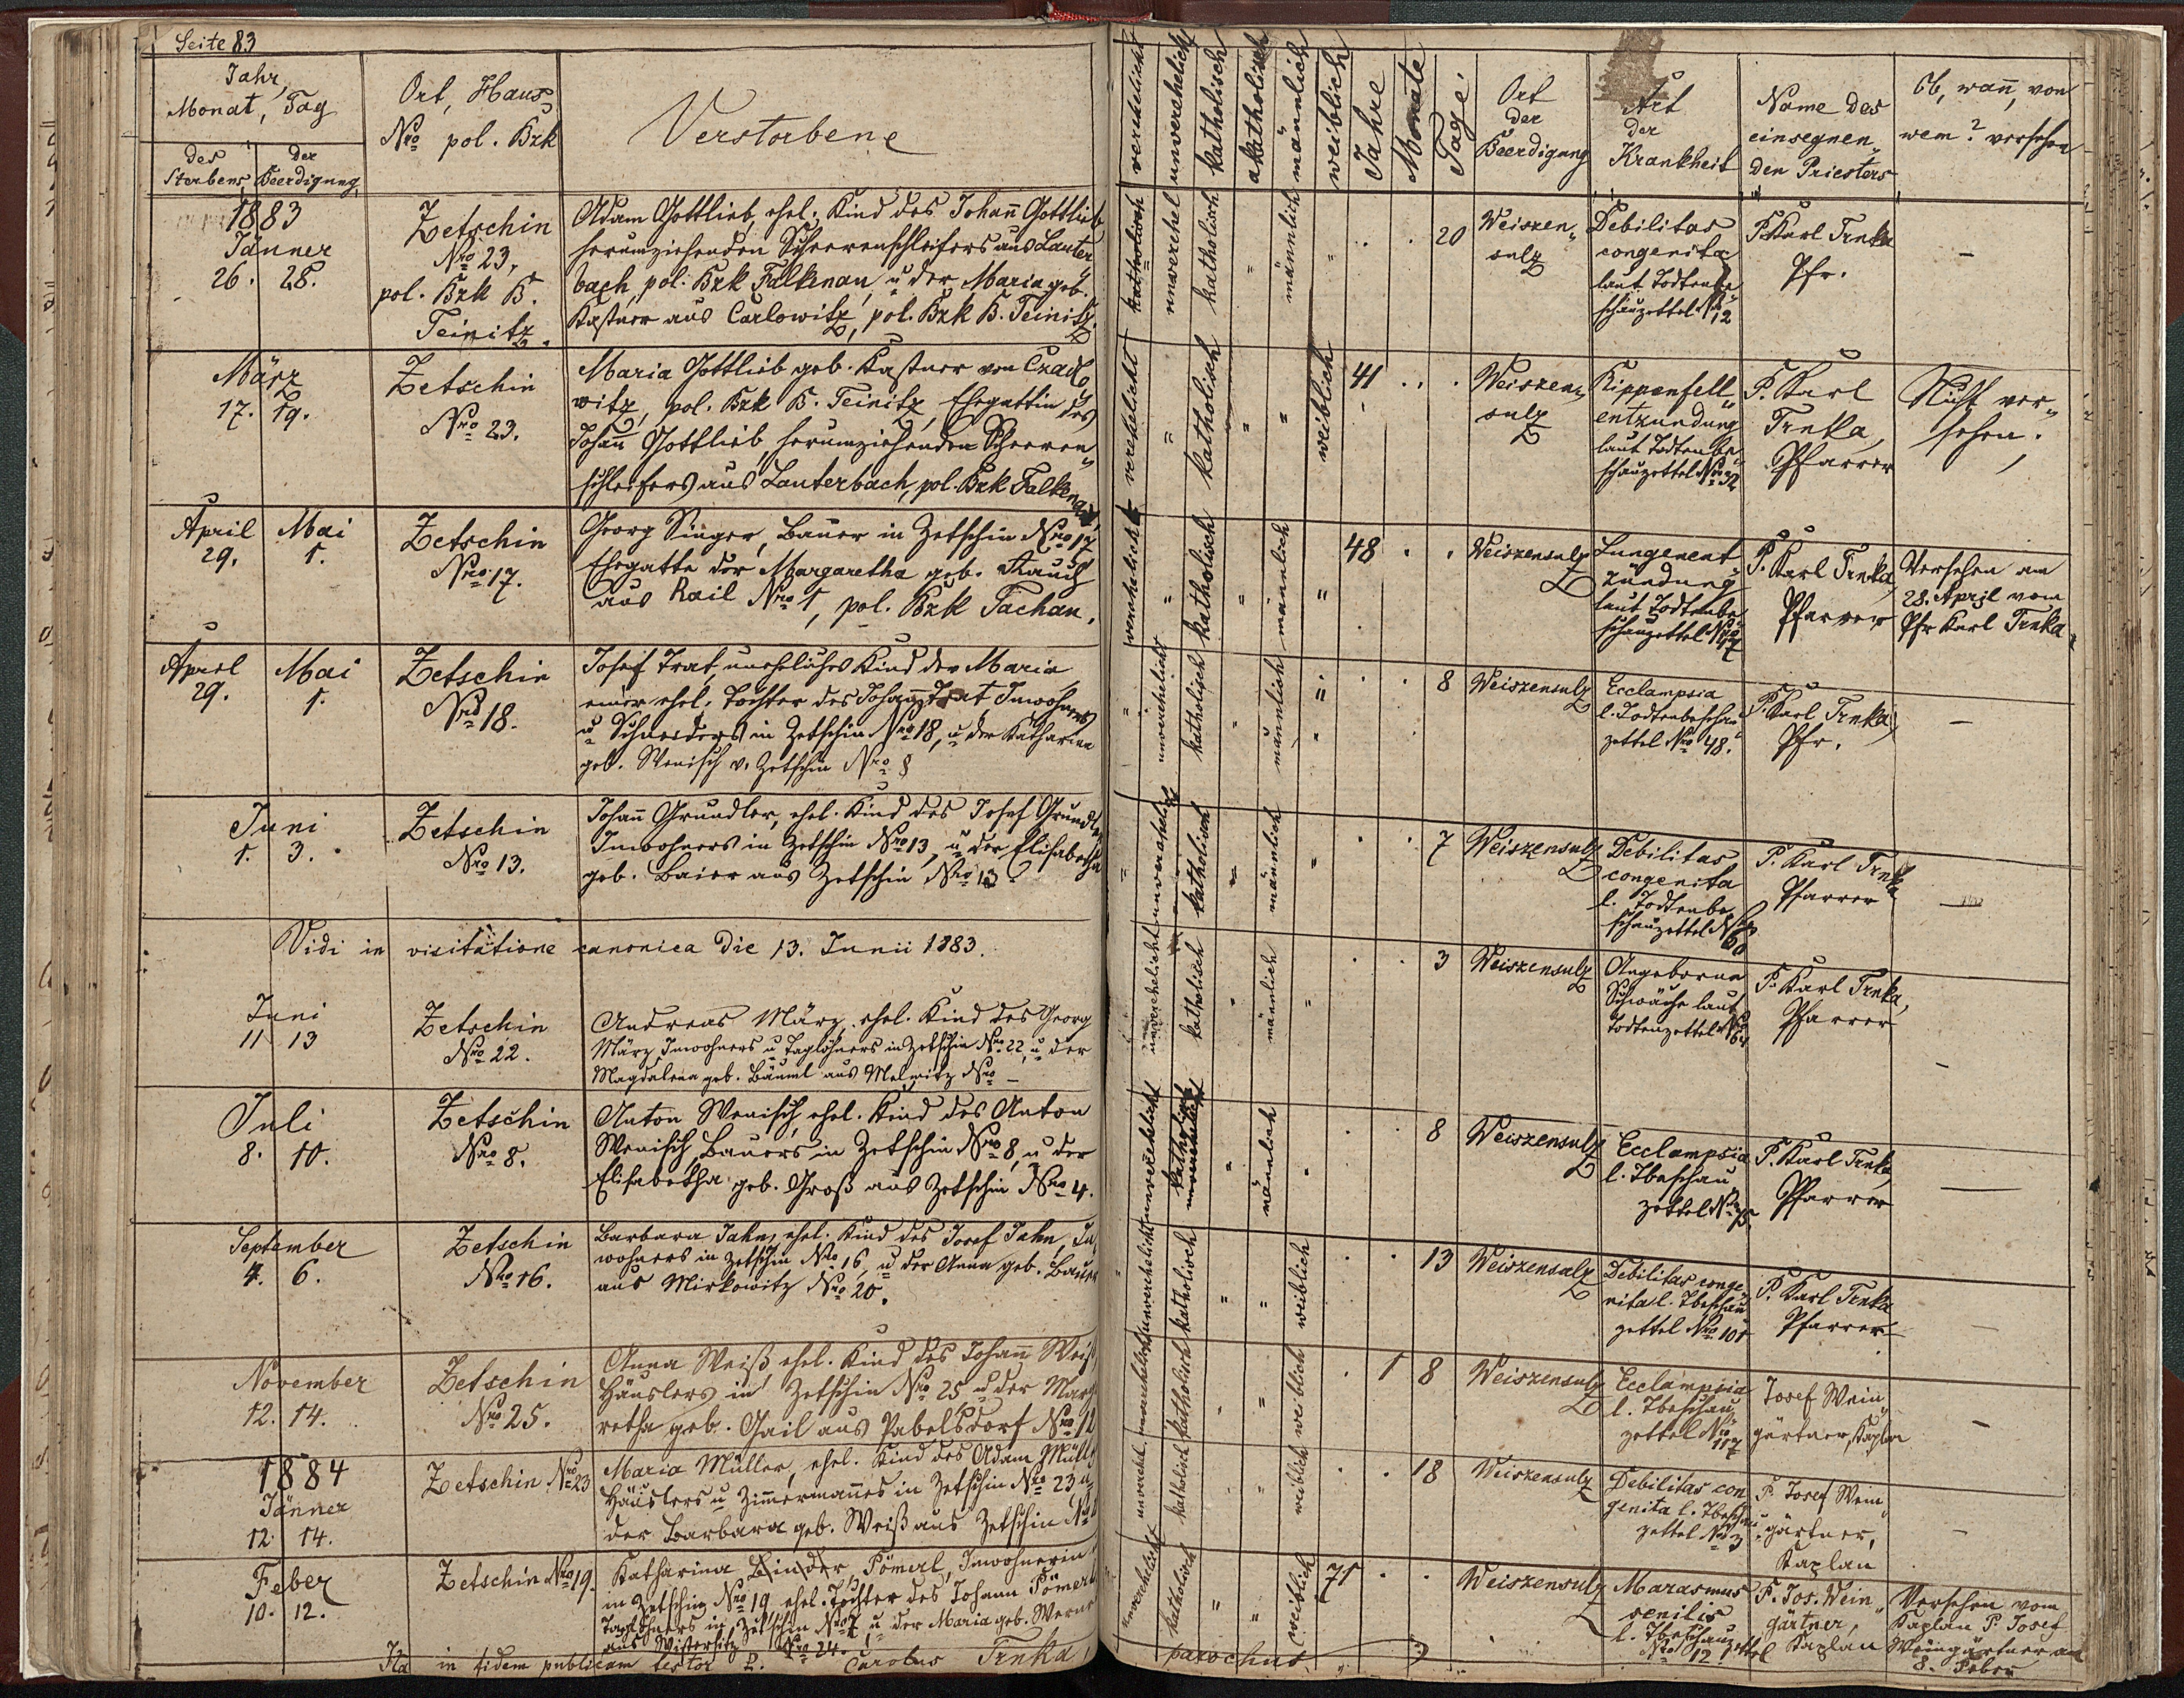 Seite 83
Jahr,
Monat, Tag
des
Sterbens
der
Beerdigung
Ort, Haus-
Nro pol. Bzk
Verstorbene
verehelicht
unverehelicht
katholisch
akatholisch
männlich
weiblich
Jahre
Monate
Tage
Ort
der
Beerdigung
Art
der
Krankheit
Name des
einsegnen„
den Priesters
Ob, wann, von
wem? versehen
1883
Jänner
26. 28.
Zetschin
Nro 23,
pol. Bzk B.
Teinitz.
Adam Gottlieb, ehel. Kind des Johann Gottlieb
herumziehenden Scheerenschleifers aus Lauter„
bach, pol. Bzk Falkenau, u der Maria geb.
Kastner aus Carlowitz, pol. Bzk B. Teinitz.
katholisch
unverehel
katholisch
"
männlich
"
. . 20
Weiszen„
sulz
Debilitas
congenita
laut Todtenbe„
schauzettel Nro 12
P. Karl Trnka
Pfr.
–
März
17. 19.
Zetschin
Nro 23.
Maria Gottlieb geb. Kastner von Czarlo„
witz, pol. Bzk B. Teinitz, Ehegattin des
Johann Gottlieb, herumziehenden Scheeren„
schleifers aus Lauterbach, pol. Bzk Falkenau,
verehelicht
"
katholisch
"
"
weiblich
41 . .
Weiszen„
sulz
Rippenfell„
entzundung
laut Todtenbe„
schauzettel Nro 32
P. Karl
Trnka,
Pfarrer
Nicht ver„
sehen.
April 29.
Mai 1.
Zetschin
Nro 17.
Georg Singer, Bauer in Zetschin Nro 17
Ehegatte der Margaretha geb. Rauch
aus Rail Nro 1, pol. Bzk Tachau.
verehelicht
"
katholisch
"
männlich
"
48 . .
Weiszensulz
Lungenent„
zündung
laut Todtenbe„
schauzettel Nro 47
P. Karl Trnka,
Pfarrer
Versehen am
28. April vom
Pfr Karl Trnka
April 29.
Mai 1.
Zetschin
Nro 18.
Josef Trat, uneheliches Kind der Maria
einer ehel. Tochter des Johann Trat Inwohners
u Schneiders in Zetschin Nro 18, u der Katharina
geb. Wenisch v. Zetschin Nro 8
"
unverehelicht
katholisch
"
männlich
"
. . 8
Weiszensulz
Ecclampsia
l. Todtenbeschau„
zettel Nro 48.
P. Karl Trnka,
Pfr.
–
Juni
1. 3.
Zetschin
Nro 13.
Johann Grundler, ehel. Kind des Josef Grundler
Inwohners in Zetschin Nro 13, u der Elisabetha
geb. Baier aus Zetschin Nro 13
"
unverehelicht
katholisch
"
männlich
"
. . 7
Weiszensulz
Debilitas
congenita
l. Todtenbe„
schauzettel Nro 60
P. Karl Trnka
Pfarrer
—
Vidi in visitatione canonica die 13. Junii 1883.
Juni
11 13
Zetschin
Nro 22.
Andreas März, ehel. Kind des Georg
März Inwohners u Taglöhners in Zetschin Nro 22, u der
Magdalena geb. Bäuml aus Melmitz Nro –
unverehelicht
katholisch
"
männlich
"
. . 3
Weiszensulz
Angeborne
Schwäche laut
Todtenzettel Nro 64
P. Karl Trnka,
Pfarrer
–
Juli
8. 10.
Zetschin
Nro 8.
Anton Wenisch, ehel. Kind des Anton
Wenisch, Bauers in Zetschin Nro 8, u der
Elisabetha geb. Groß aus Zetschin Nro 4.
unverehelicht
katholisch
"
männlich
"
. . 8
Weiszensulz
Ecclampsia
l. Tbeschau„
zettel Nro 75
P. Karl Trnka,
Pfarrer
—
September
4. 6.
Zetschin
Nro 16.
Barbara Jahn, ehel. Kind des Josef Jahn, In„
wohners in Zetschin Nro 16, u der Anna geb. Bauer
aus Mirkowitz Nro 20.
unverehelicht
katholisch
"
"
weiblich
. . 13
Weiszensulz
Debilitas conge„
nita l. Tbeschau„
zettel Nro 101
P. Karl Trnka
Pfarrer
November
12. 14.
Zetschin
Nro 25.
Anna Weiß, ehel. Kind des Johann Weiß
Häuslers in Zetschin Nro 25 u der Marga
retha geb. Gail aus Pabelsdorf Nro 12
unverehelicht
katholisch
"
"
weiblich
. 1 8
Weiszensulz
Ecclampsia
l. Tbeschau„
zettel Nro 117
Josef Wein„
gärtner, Kaplan
–
1884
Jänner
12. 14.
Zetschin Nro 23
Maria Müller, ehel. Kind des Adam Müller
Häuslers u Zimmermannes in Zetschin Nro 23 u
der Barbara geb. Weiß aus Zetschin Nro
unverehel.
katholisch
"
"
weiblich
. . 18
Weiszensulz
Debilitas con
genita l. Tbeschau„
zettel Nro 3
P. Josef Wein„
gärtner,
Kaplan
–
Feber
10. 12.
Zetschin Nro 19.
Katharina Binder, Pömerl, Inwohnerin
in Zetschin Nro 19 ehel. Tochter des Johann Pömerl
Taglöhners in Zetschin Nro 7, u der Maria geb. Werner
aus Wistersitz Nro 24.
unverehelicht
katholisch
"
"
weiblich
71 . .
Weiszensulz
Marasmus
senilis
l. Tbeschauzettel
Nro 12
P. Jos. Wein„
gärtner,
Kaplan
Versehen vom
Kaplan P. Josef
Weingärtner am
8. Feber
Ita in fidem publicam testor P. Carolus Trnka, parochus